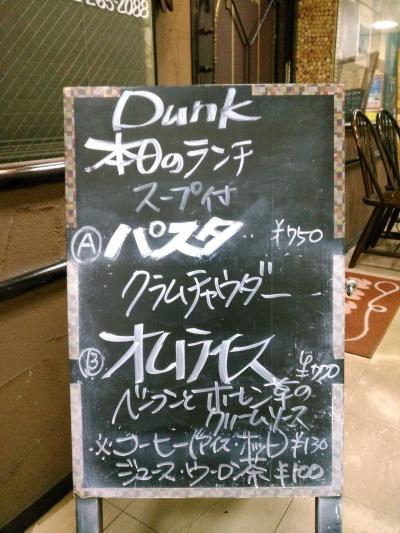 265-2088
Dunk
本日のランチ
スープ付
Ⓐ パスタ ¥750
クラムチャウダー
Ⓑ オムライス ¥700
ベーコンとホーレン草の
クリームソース
※コーヒー(アイス・ホット) ¥130
ジュース・ウーロン茶 ¥100